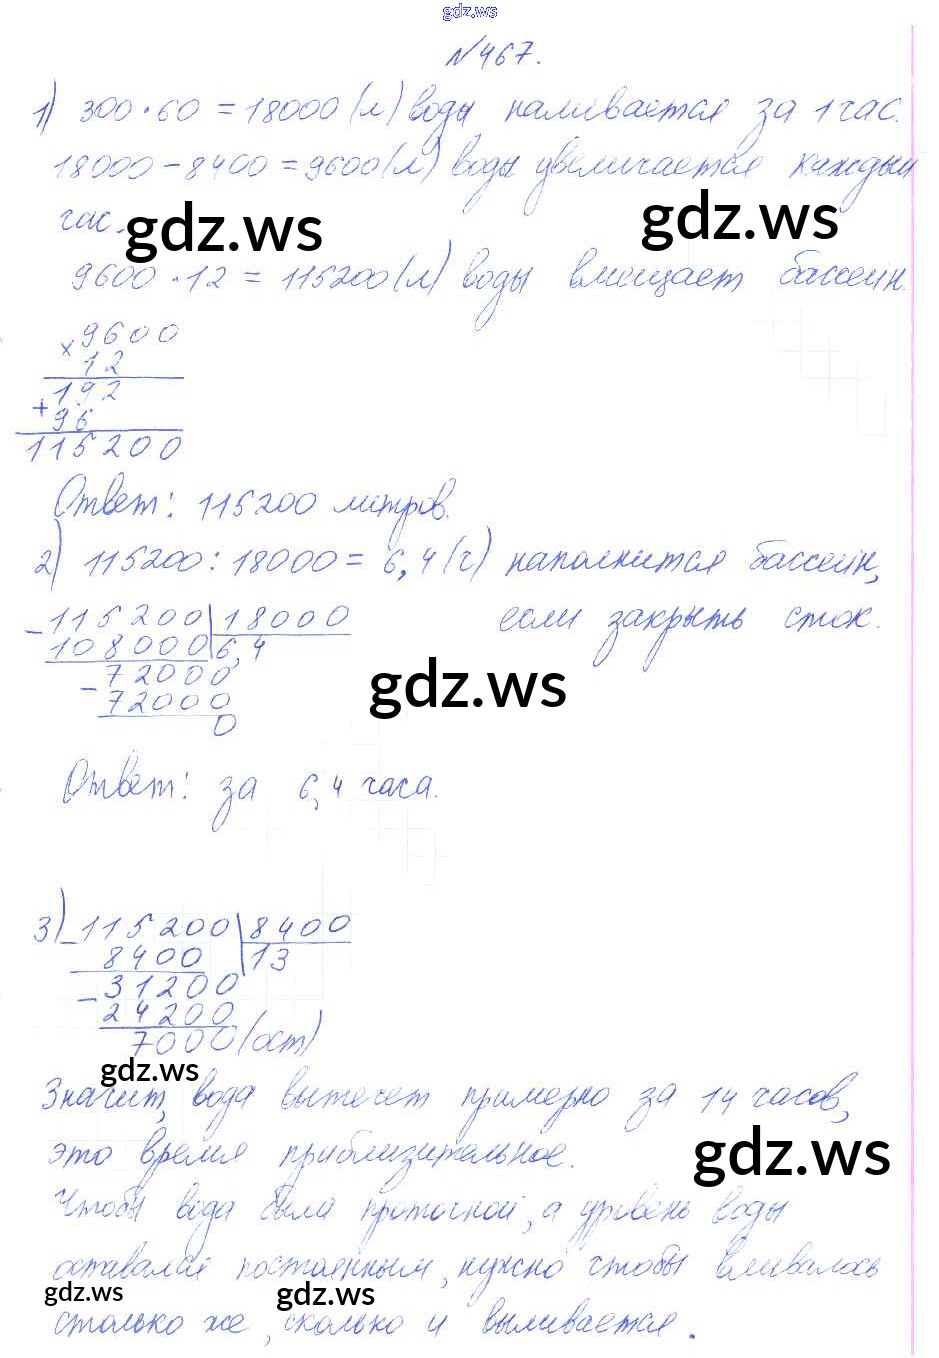 gdz.ws
№467.
1) 300·60=18000(л) воды наливается за 1 час.
18000-8400=9600(л) воды увеличается каждый
час.
gdz.ws
gdz.ws
9600·12=115200(л) воды вмещает бассейн.
× 9600
12
192
+ 96
115200
Ответ: 115200 литров.
2) 115200:18000=6,4(ч) наполнится бассейн,
если закрыть сток.
- 115200 | 18000
108000 6,4
- 72000
72000
0
gdz.ws
Ответ: за 6,4 часа.
3) - 115200 | 8400
8400 13
- 31200
24200
7000(ост)
gdz.ws
Значит, вода вытечет примерно за 14 часов,
это время приблизительное.
gdz.ws
Чтобы вода была проточной, а уровень воды
оставался постоянным, нужно чтобы вливалось
gdz.ws
gdz.ws
столько же, сколько и выливается.